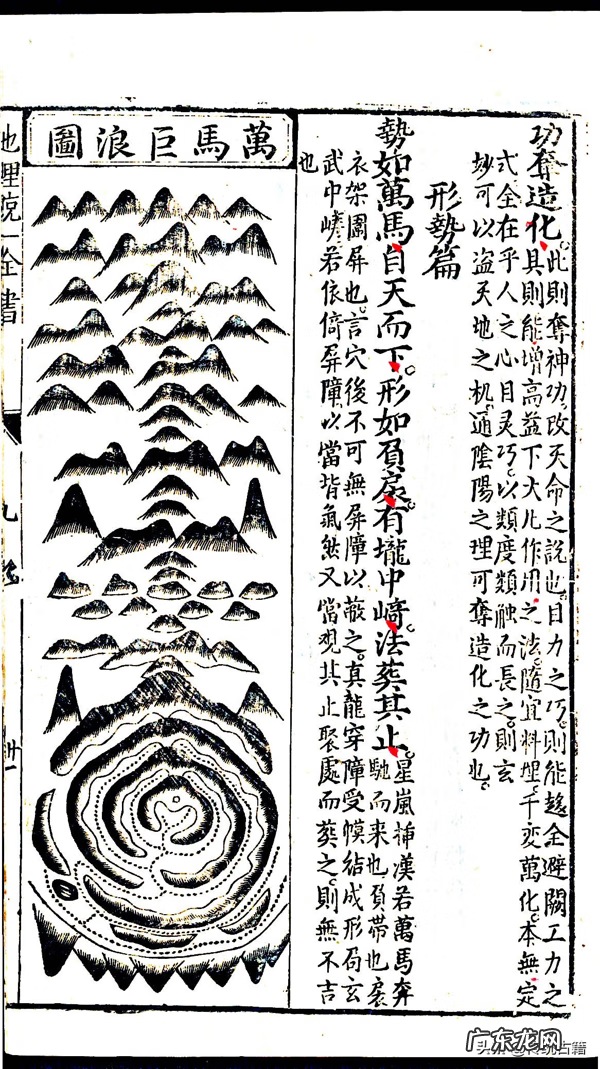 功奪造化。此則奪神功,改天命之說也。目力之巧,則能趨全避闕,工力之
具則能增高益下,大凡作用之法。隨宜料理,千變萬化。本無定
式,全在乎人之心目灵巧。以類度類,触而長之。則玄
妙可以盗天地之机,通陰陽之理,可奪造化之功也。
形勢篇
勢如萬馬,自天而下。形如負扆,有壠中峙。法葬其止。星嵐揷漢,若萬馬奔
馳而来也。負帶也。扆
衣架圍屏也。言穴後不可無屏障以蔽之。真龍穿障受幙,結成形局,玄
武中峙,若依倚屏障,以當背氣。然又當观其止聚處而葬之。則無不吉
也
萬馬巨浪圖
地理統一全書
九
廿一
广东龙网